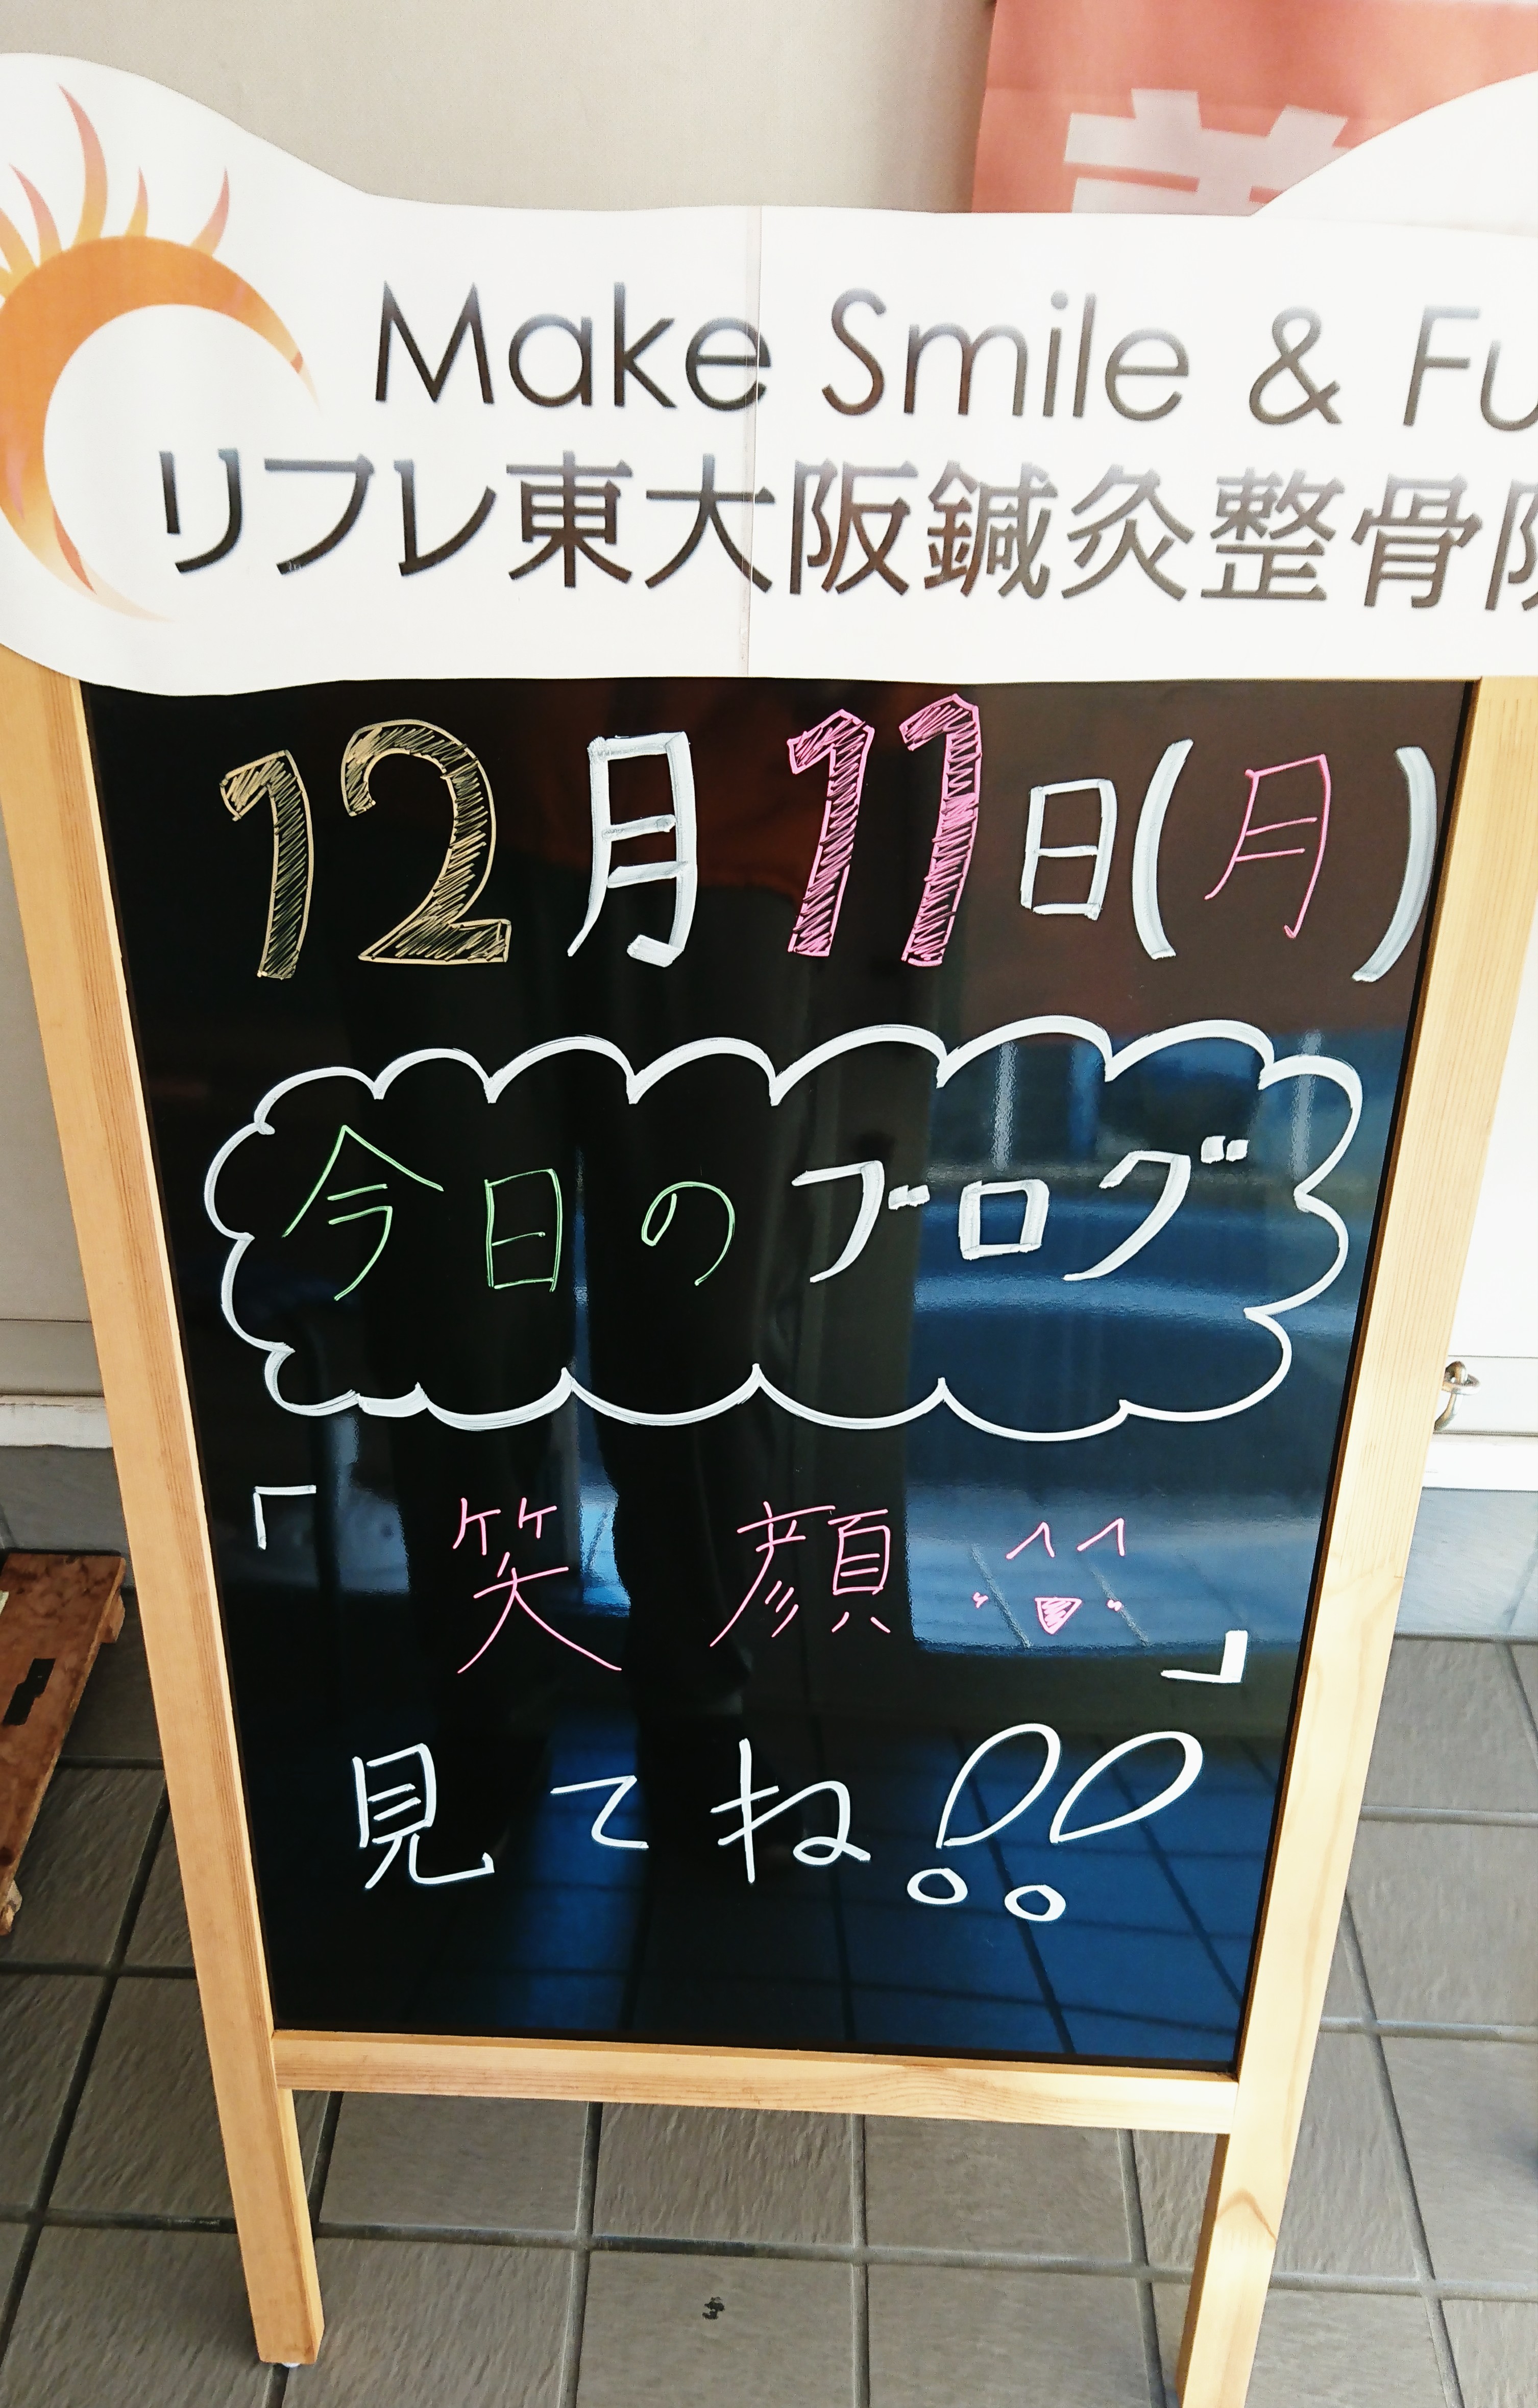 Make Smile & Fu
リフレ東大阪鍼灸整骨
12月11日(月)
今日のブログ
「笑顔^^」
見てね!!